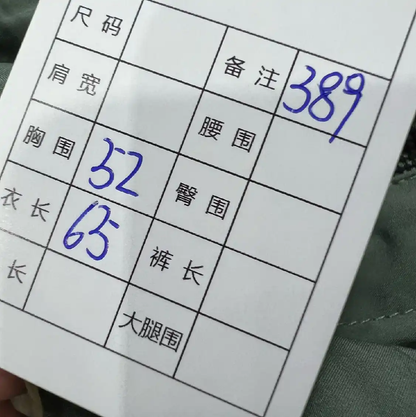 尺码 备注 389
肩宽 腰围
胸围 52 臀围
衣长 65 裤长
长 大腿围